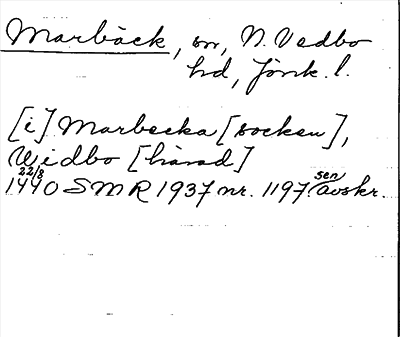 Marbäck, sn, N. Vedbo
hd, Jönk. l.
[i] Marbecka [socken],
Widbo [härad]
22/8
1440 SMR 1937 nr. 1197. sen avskr.